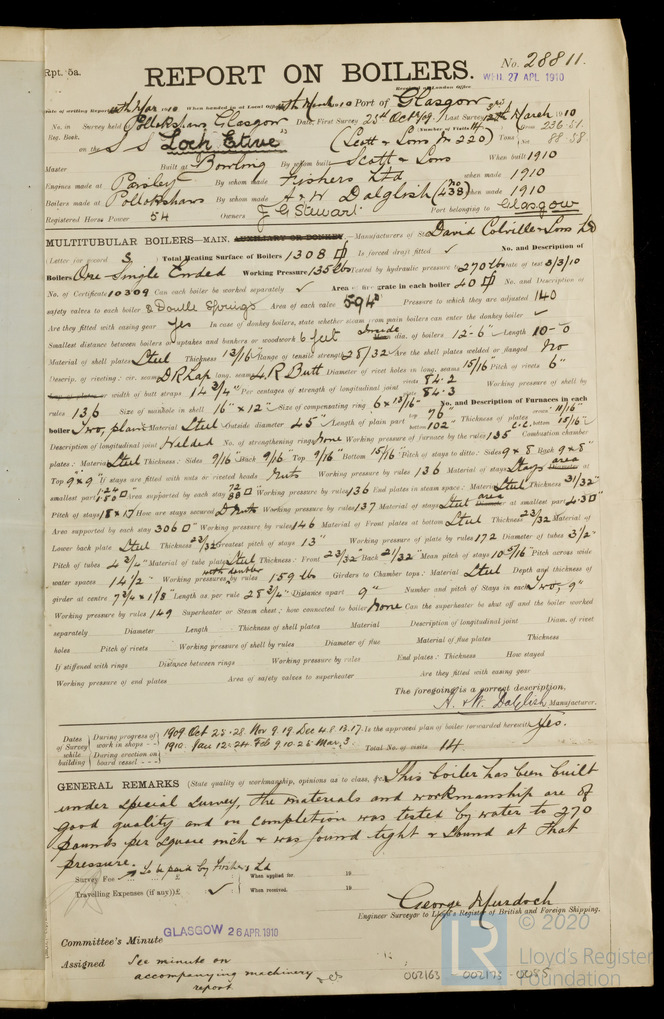 Rpt. 5a.
No. 28811.
REPORT ON BOILERS.
Received at London Office
WED. 27 APR. 1910
Date of writing Report 10 When handed in at Local Office 10 Port of Glasgow
No. in Survey held Pollokshaws Glasgow Date, First Survey 25th Oct 1909 Last Survey March 1910
Reg. Book. (Number of Visits 14)
on the S S "Loch Etive" (Scott & Sons No 220) Tons Gross 236.51 Net 88.58
Master Built at Bowling By whom built Scott & Sons When built 1910
Engines made at Paisley By whom made Fishers Ltd when made 1910
Boilers made at Pollokshaws By whom made A & W Dalglish (No 438) when made 1910
Registered Horse Power 54 Owners J G Stewart Port belonging to Glasgow
MULTITUBULAR BOILERS—MAIN, AUXILIARY OR DONKEY.—Manufacturers of Steel David Colville & Sons Ld
(Letter for record S) Total Heating Surface of Boilers 1308 Is forced draft fitted ✓ No. and Description of
Boilers One Single Ended Working Pressure 135 lbs Tested by hydraulic pressure to 270 lbs Date of test 3/3/10
No. of Certificate 10309 Can each boiler be worked separately ✓ Area of fire grate in each boiler 40 No. and Description of
safety valves to each boiler 2 Double Springs Area of each valve 5.94" Pressure to which they are adjusted 140
Are they fitted with easing gear Yes In case of donkey boilers, state whether steam from main boilers can enter the donkey boiler ✓
Smallest distance between boilers or uptakes and bunkers or woodwork 6 feet Inside Mean dia. of boilers 12'-6" Length 10-0
Material of shell plates Steel Thickness 13/16" Range of tensile strength 28/32 Are the shell plates welded or flanged No
Descrip. of riveting: cir. seams D R Lap long. seams 4 R Butt Diameter of rivet holes in long. seams 15/16 Pitch of rivets 6"
Lap of plates or width of butt straps 14 3/4" Per centages of strength of longitudinal joint rivets 84.2 plate 84.3 Working pressure of shell by
rules 136 Size of manhole in shell 16" x 12" Size of compensating ring 6 x 13/16" No. and Description of Furnaces in each
boiler Two, plain Material Steel Outside diameter 45" Length of plain part top 76" bottom 102" Thickness of plates crown 11/16" bottom 15/16"
Description of longitudinal joint Welded No. of strengthening rings None Working pressure of furnace by the rules 135 C.C. bottom Combustion chamber
plates: Material Steel Thickness: Sides 9/16" Back 9/16" Top 9/16" Bottom 15/16" Pitch of stays to ditto: Sides 9 x 8 Back 9 x 8"
Top 9" x 9" If stays are fitted with nuts or riveted heads Nuts Working pressure by rules 136 Material of stays Steel area Diameter at
smallest part Area supported by each stay Working pressure by rules 136 End plates in steam space: Material Steel Thickness 31/32"
Pitch of stays 18 x 17 How are stays secured D Nuts Working pressure by rules 137 Material of stays Steel area Diameter at smallest part 4.30"
Area supported by each stay 306 Working pressure by rules 146 Material of Front plates at bottom Steel Thickness 23/32 Material of
Lower back plate Steel Thickness 23/32 Greatest pitch of stays 13" Working pressure of plate by rules 172 Diameter of tubes 3 1/2"
Pitch of tubes 4 3/4" Material of tube plates Steel Thickness: Front 23/32" Back 21/32" Mean pitch of stays 10 9/16" Pitch across wide
water spaces 14 1/2" with doubler Working pressures by rules 159 lbs Girders to Chamber tops: Material Steel Depth and thickness of
girder at centre 7 3/4 x 1 1/8" Length as per rule 28 3/4" Distance apart 9" Number and pitch of Stays in each Two, 9"
Working pressure by rules 149 Superheater or Steam chest; how connected to boiler None Can the superheater be shut off and the boiler worked
separately Diameter Length Thickness of shell plates Material Description of longitudinal joint Diam. of rivet
holes Pitch of rivets Working pressure of shell by rules Diameter of flue Material of flue plates Thickness
If stiffened with rings Distance between rings Working pressure by rules End plates: Thickness How stayed
Working pressure of end plates Area of safety valves to superheater Are they fitted with easing gear
The foregoing is a correct description,
A. & W. Dalglish Manufacturer.
Dates of Survey while building
During progress of work in shops - - 1909 Oct 25.28. Nov 9.19 Dec 4.8.13.17. Is the approved plan of boiler forwarded herewith Yes.
During erection on board vessel - - - 1910. Jan 12.24. Feb 9.10.25 Mar 3. Total No. of visits 14.
GENERAL REMARKS (State quality of workmanship, opinions as to class, &c. This boiler has been built
under special survey, the materials and workmanship are of
good quality and on completion was tested by water to 270
pounds per square inch & was found tight & sound at that
pressure.
Survey Fee ... £ To be paid by Fishers Ld When applied for. 19
Travelling Expenses (if any) £ ✓ When received. 19
George Murdoch
Engineer Surveyor to Lloyd's Register of British and Foreign Shipping.
Committee's Minute GLASGOW 26 APR. 1910
Assigned See minute on
accompanying machinery
report
© 2020
LR
Lloyd's Register
Foundation
002163 - 002173 - 0085